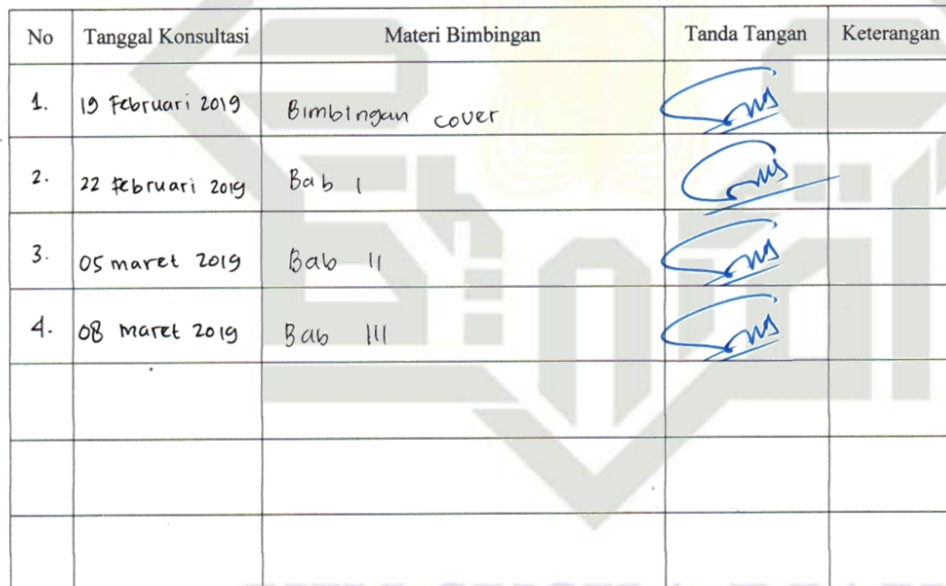 No Tanggal Konsultasi Materi Bimbingan Tanda Tangan Keterangan
1. 19 Februari 2019 Bimbingan cover
2. 22 Februari 2019 Bab I
3. 05 maret 2019 Bab II
4. 08 maret 2019 Bab III